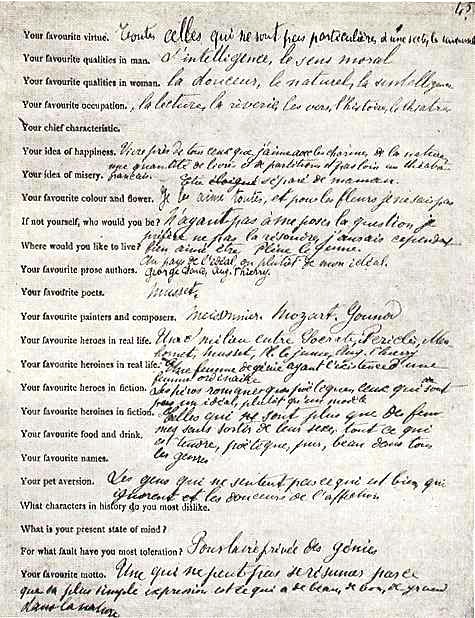 Your favourite virtue. Toutes celles qui ne sont pas particulières à une secte, les
Your favourite qualities in man. L'intelligence, le sens moral
Your favourite qualities in woman. La douceur, le naturel, l'intelligence
Your favourite occupation. La lecture, la rêverie, les vers, l'histoire, le théâtre
Your chief characteristic.
Your idea of happiness. Vivre près de tous ceux que j'aime avec les charmes de la nature
une quantité de livres et de partitions, et pas loin un théâtre
français.
Your idea of misery. Etre séparé de maman.
Your favourite colour and flower. Je les aime toutes, et pour les fleurs, je ne sais pas
If not yourself, who would you be? N'ayant pas à me poser la question, je
préfère ne pas la résoudre, j'aurais cependant
bien aimé être Pline le Jeune.
Where would you like to live? Au pays de l'idéal, ou plutôt de mon idéal.
Your favourite prose authors. George Sand, Aug. Thierry.
Your favourite poets. Musset.
Your favourite painters and composers. Meissonnier, Mozart, Gounod
Your favourite heroes in real life. Un milieu entre Socrate, Périclès, Mahomet, Musset, Pl. le Jeune, Aug. Thierry
Your favourite heroines in real life. Une femme de génie ayant l'existence d'une
femme ordinaire
Your favourite heroes in fiction. Les héros romanesques poétiques, ceux qui sont
un idéal plutôt qu'un modèle
Your favourite heroines in fiction. Celles qui ne sont plus que des femmes sans sortir de leur sexe, tout ce qui
est tendre, poétique, pur, beau dans tous
les genres
Your favourite food and drink.
Your favourite names.
Your pet aversion. Les gens qui ne sentent pas ce qui est bien, qui
ignorent les douceurs de l'affection
What characters in history do you most dislike.
What is your present state of mind?
For what fault have you most toleration? Pour la vie privée des génies
Your favourite motto. Une qui ne peut pas se résumer parce
que sa plus simple expression est ce qui a de beau, de bon, de grand
dans la nature